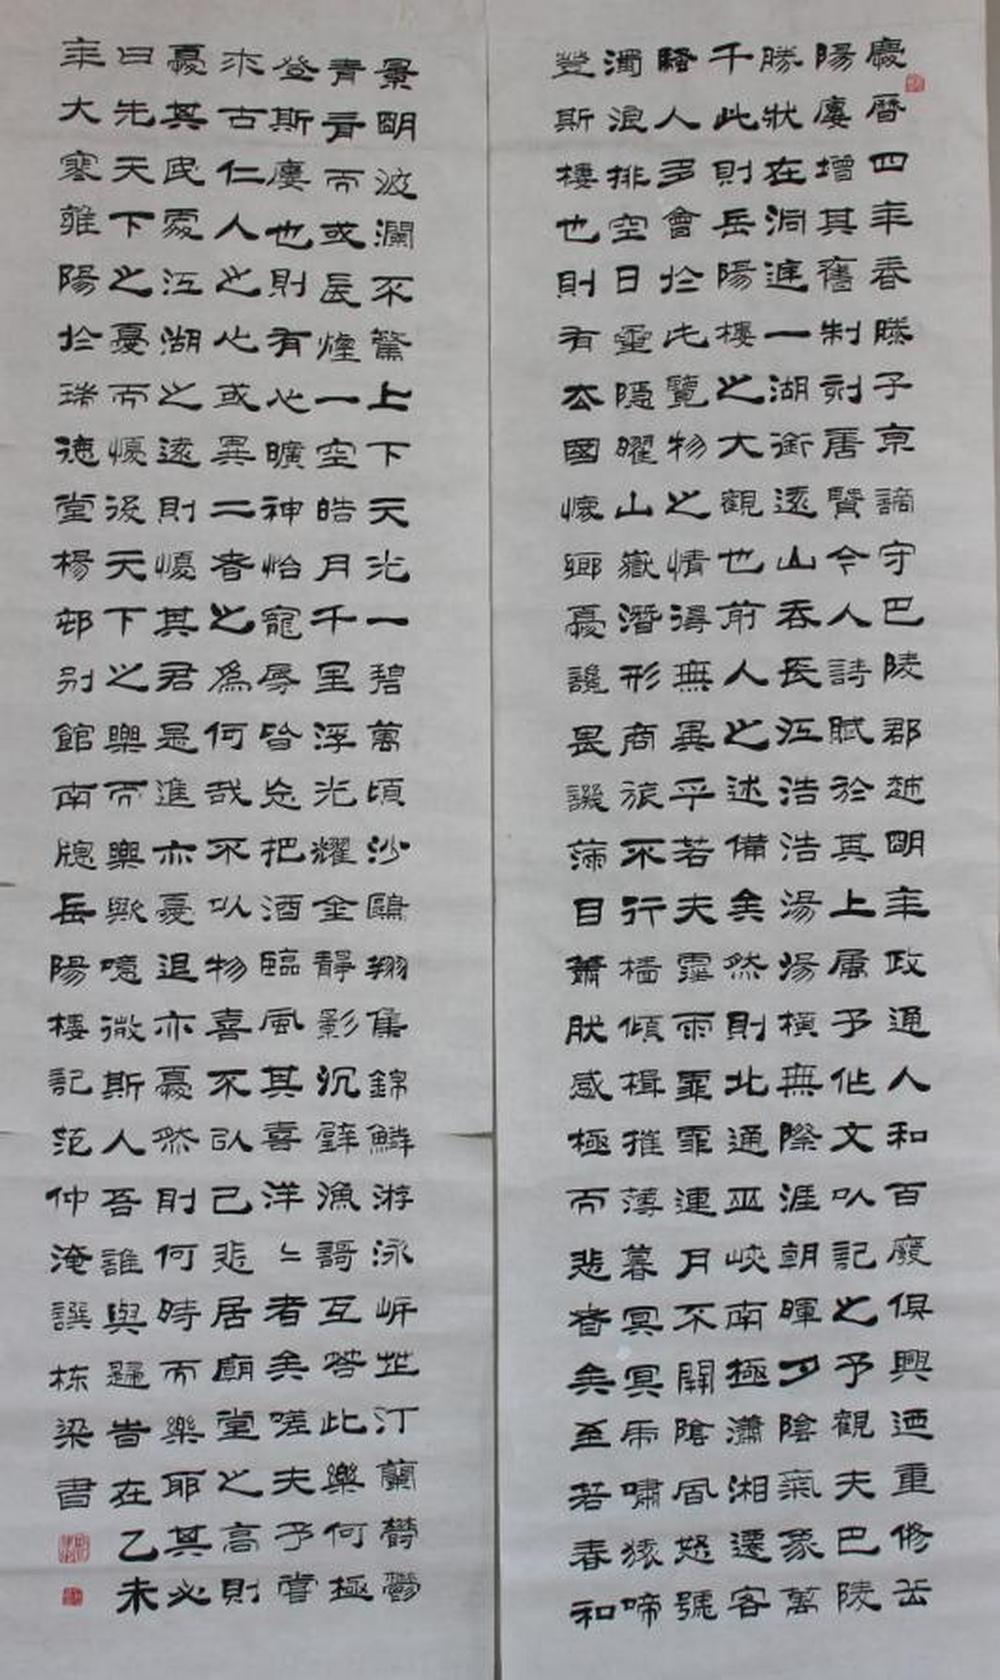 慶曆四年春滕子京謫守巴陵郡越明年政通人和百廢俱興迺重脩岳
陽廔增其舊制刻唐賢今人詩賦於其上屬予作文以記之予觀夫巴陵
勝狀在洞庭一湖銜遠山吞長江浩浩湯湯橫無際涯朝暉夕陰氣象萬
千此則岳陽樓之大觀也前人之述備矣然則北通巫峽南極瀟湘遷客
騷人多會於此覽物之情得無異乎若夫霪雨霏霏連月不開陰風怒號
濁浪排空日星隱曜山嶽潛形商旅不行檣傾楫摧薄暮冥冥虎嘯猿啼
登斯樓也則有去國懷鄉憂讒畏譏滿目蕭肰感極而悲者矣至若春和
景明波瀾不驚上下天光一碧萬頃沙鷗翔集錦鱗游泳岸芷汀蘭鬱鬱
青青而或長煙一空皓月千里浮光耀金靜影沉璧漁謌互答此樂何極
登斯廔也則有心曠神怡寵辱皆忘把酒臨風其喜洋〻者矣嗟夫予嘗
求古仁人之心或異二者之為何哉不以物喜不以己悲居廟堂之高則
憂其民處江湖之遠則憂其君是進亦憂退亦憂然則何時而樂耶其必
曰先天下之憂而憂後天下之樂而樂歟噫微斯人吾誰與歸旹在乙未
年大寒雒陽於瑞德堂楊邨别館南牕岳陽樓記范仲淹譔栋梁書